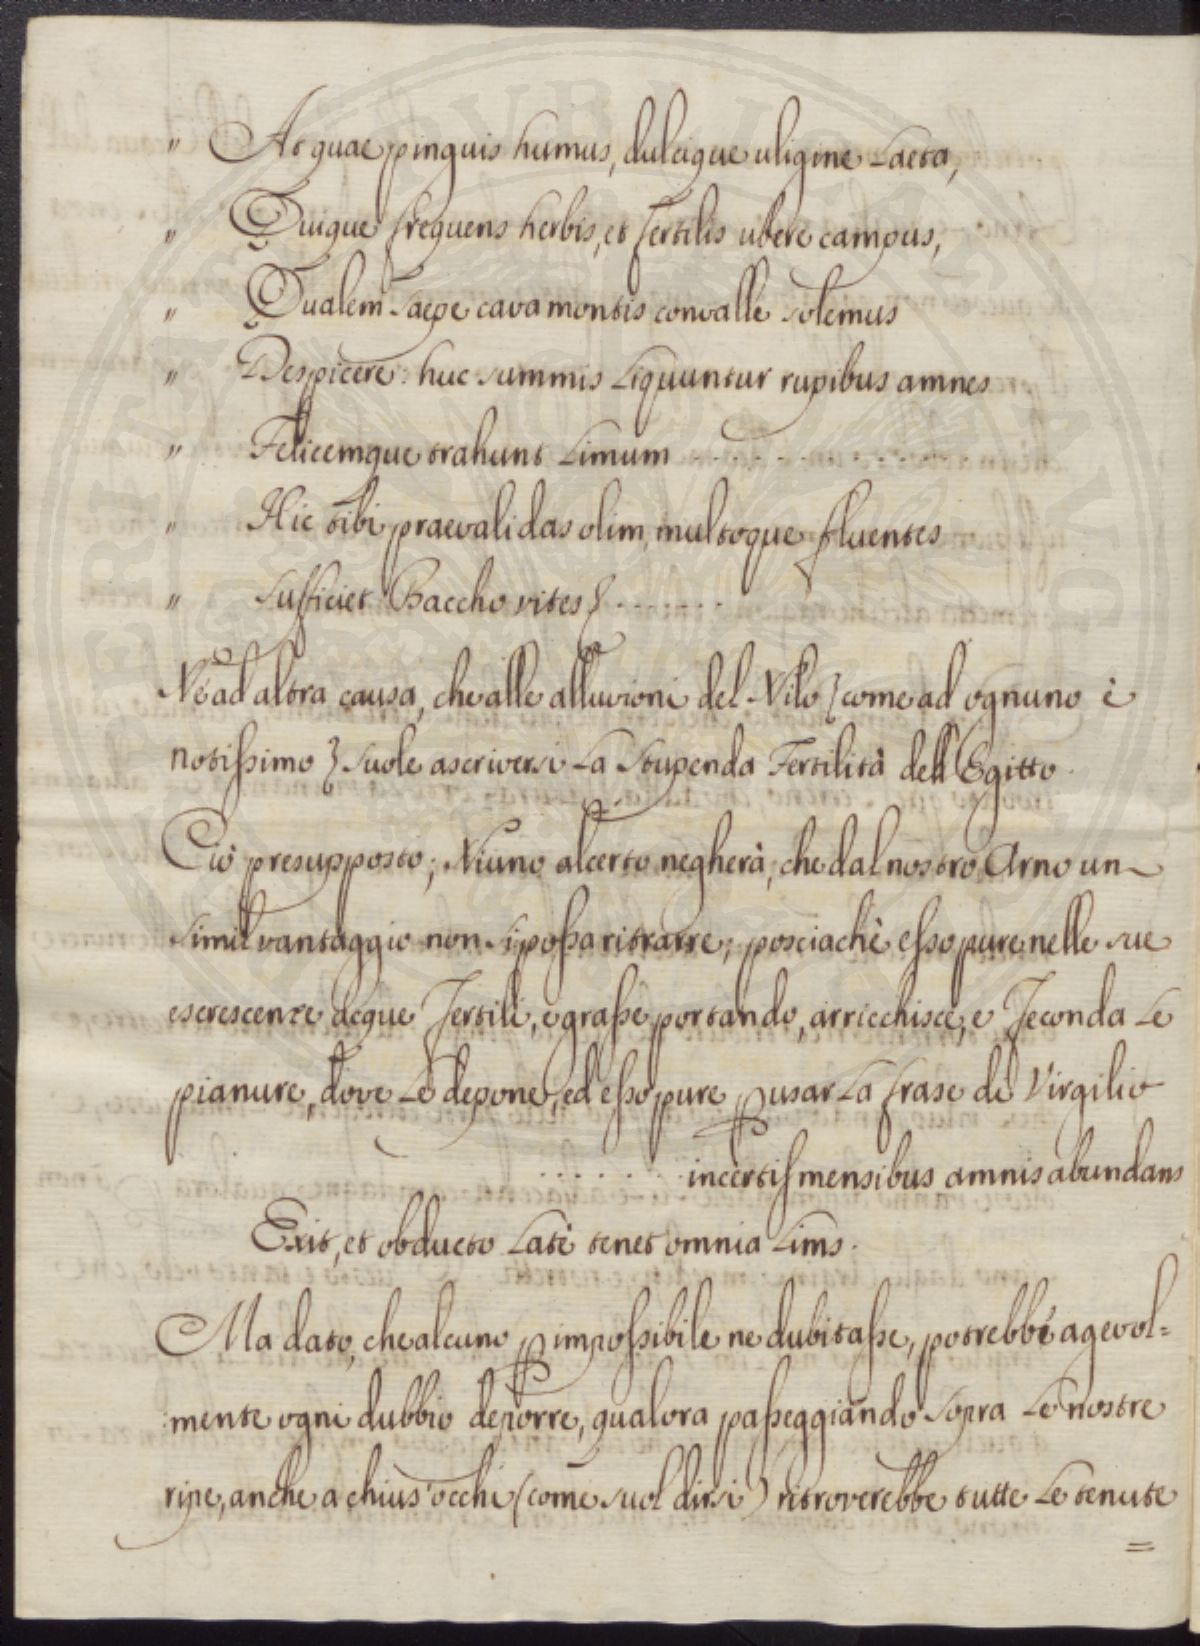 " At quae pinguis humus, dulcique uligine laeta,
" Quique frequens herbis, et fertilis ubere campus,
" Qualem saepe cava montis convalle solemus
" Despicere: huc summis liquuntur rupibus amnes
" Felicemque trahunt limum . . . . . . . . .
" Hic tibi praevalidas olim, multoque fluentes
" Sufficiet Baccho vites} . . . . . . .
Nè ad altra causa, che alle alluvioni del Nilo {come ad ognuno è
notissimo} suole ascriversi la stupenda Fertilità dell'Egitto.
Ciò presupposto; Niuno alcerto negherà, che dal nostro Arno un
simil vantaggio non si possa ritrarre; posciachè esso pure nelle sue
escrescenze acque fertili, e grasse portando, arricchisce, e feconda le
pianure, dove le depone, ed esso pure p usar la frase di Virgilio
. . . . . . . incertis mensibus amnis abundans
Exit, et obducto latè tenet omnia lims.
Ma dato, che alcuno p impossibile ne dubitasse, potrebbe agevol=
mente ogni dubbio deporre, qualora passeggiando sopra le nostre
ripe, anche a chius'occhi (come suol dirsi) ritroverebbe tutte le tenute
=